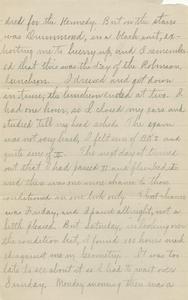 dred for the Kennedy. But on the stairs
was Drummond, in a black suit, ex-
horting me to hurry up, and I remember
ed that this was the day of the Robinson
luncheon. I dressed and got down
in time, the luncheon ended at two. I
had one hour, so I closed my ears and
studied till my had ached. The exam
was not very hard, I felt sure of and
quite sure of II. The next day it turned
out that I had passed II and flunked
and there was one more chance &
conditioned in one but only. That chance
was Friday, and I passed all right, not a
little pleased. But Saturday, in looking over
the condition list, I found had been mark
ed against me in Geometry. It was too
late to see about it so I had to wait over
Sunday. Monday morning there was a